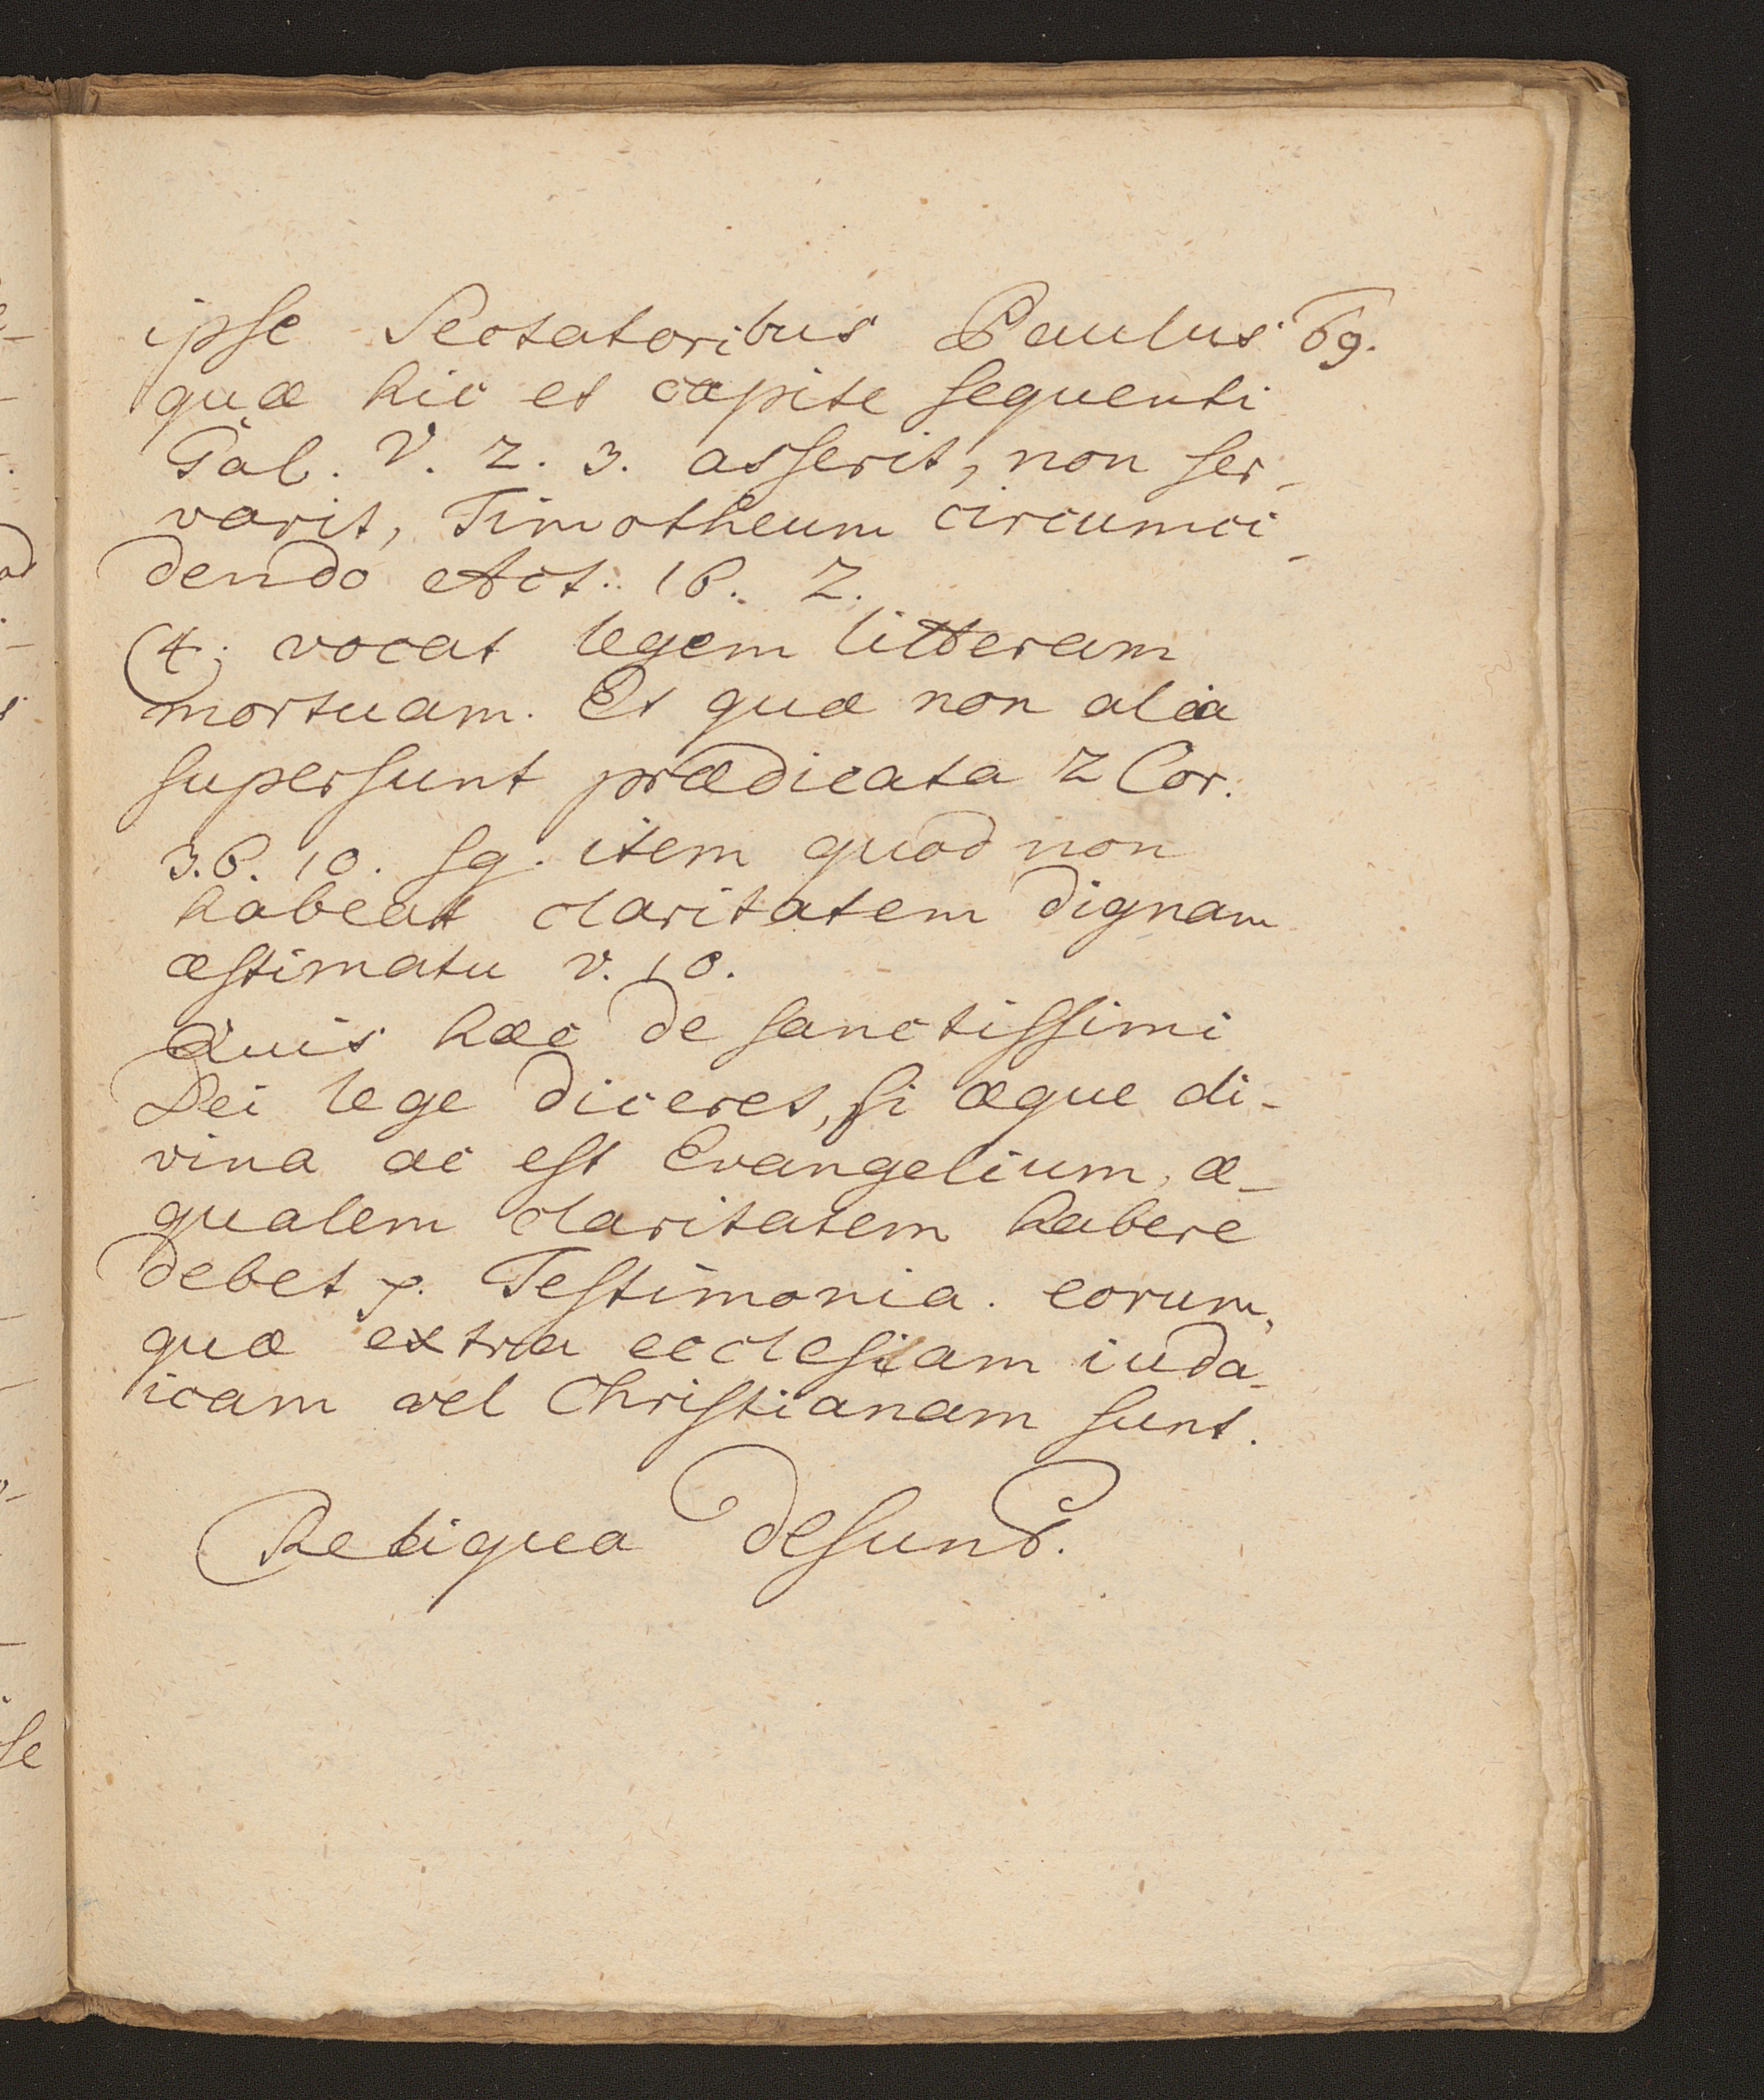 ipse Sectatoribus Paulus 69.
quæ hic et capite sequenti
Gal. V. 2. 3. asserit, non ser-
varit, Timotheum circumci-
dendo Act. 16. 2.
4; vocat legem litteram
mortuam. Et quæ non alia
supersunt prædicata 2 Cor.
3. 6. 10. sq. item quod non
habeat claritatem dignam
æstimatu v. 10.
Quis hæc de sanctissimi
Dei lege diceret, si æque di-
vina ac est Evangelium, æ-
qualem claritatem habere
debet Testimonia. eorum,
quæ extra ecclesiam iuda-
icam vel Christianam sunt.
Reliqua desunt.